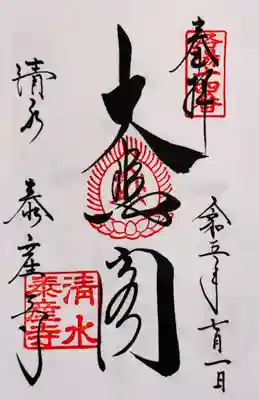 奉拝
令和五年七月一日
大悲閣
清水
泰産寺
清水
泰産寺